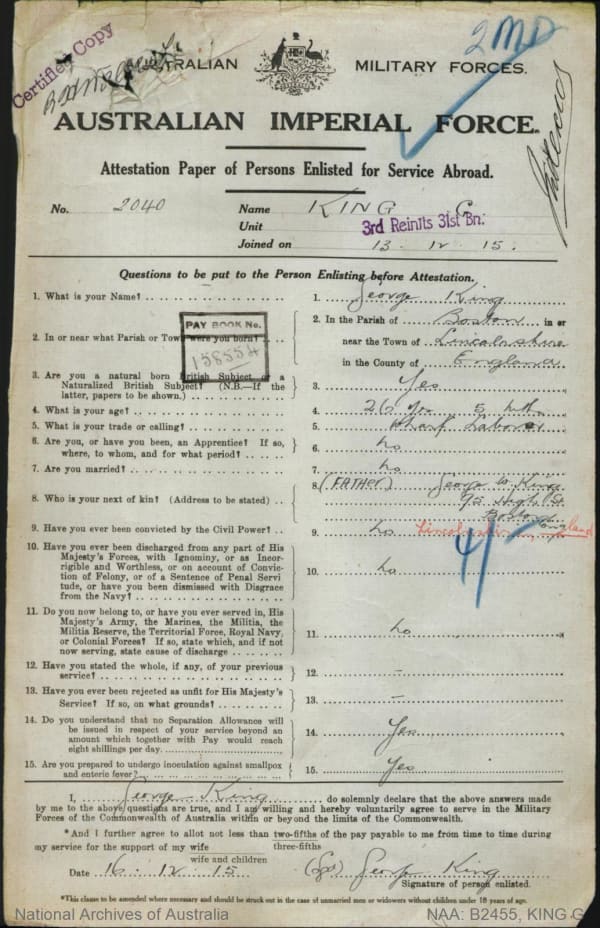 Certified Copy
2 MD
AUSTRALIAN MILITARY FORCES.
AUSTRALIAN IMPERIAL FORCE.
Attestation Paper of Persons Enlisted for Service Abroad.
No. 2040 Name KING G.
Unit 3rd Reinfts 31st Bn.
Joined on 13.12.15.
Questions to be put to the Person Enlisting before Attestation.
1. What is your Name? 1. George King
PAY BOOK No.
158554
2. In or near what Parish or Town were you born? 2. In the Parish of Boston in or
near the Town of Lincolnshire
in the County of England
3. Are you a natural born British Subject or a
Naturalized British Subject? (N.B.—If the
latter, papers to be shown.) 3. Yes
4. What is your age? 4. 26 yrs 5 mth
5. What is your trade or calling? 5. Wharf Laborer
6. Are you, or have you been, an Apprentice? If so,
where, to whom, and for what period? 6. no
7. Are you married? 7. no
8. Who is your next of kin? (Address to be stated) 8. (FATHER) George W King
95 High St
Boston
9. Have you ever been convicted by the Civil Power? 9. no Lincolnshire, England
4/-
10. Have you ever been discharged from any part of His
Majesty's Forces, with Ignominy, or as Incor-
rigible and Worthless, or on account of Convic-
tion of Felony, or of a Sentence of Penal Servi-
tude, or have you been dismissed with Disgrace
from the Navy? 10. no
11. Do you now belong to, or have you ever served in, His
Majesty's Army, the Marines, the Militia, the
Militia Reserve, the Territorial Force, Royal Navy,
or Colonial Forces? If so, state which, and if not
now serving, state cause of discharge 11. no
12. Have you stated the whole, if any, of your previous
service? 12. —
13. Have you ever been rejected as unfit for His Majesty's
Service? If so, on what grounds? 13. —
14. Do you understand that no Separation Allowance will
be issued in respect of your service beyond an
amount which together with Pay would reach
eight shillings per day. 14. Yes
15. Are you prepared to undergo inoculation against smallpox
and enteric fever? 15. Yes
I, George King do solemnly declare that the above answers made
by me to the above questions are true, and I am willing and hereby voluntarily agree to serve in the Military
Forces of the Commonwealth of Australia within or beyond the limits of the Commonwealth.
*And I further agree to allot not less than two-fifths of the pay payable to me from time to time during
three-fifths
my service for the support of my wife
wife and children
Date 16.12.15 (Sgd) George King
Signature of person enlisted.
*This clause to be amended where necessary and should be struck out in the case of unmarried men or widowers without children under 18 years of age.
National Archives of Australia NAA: B2455, KING G